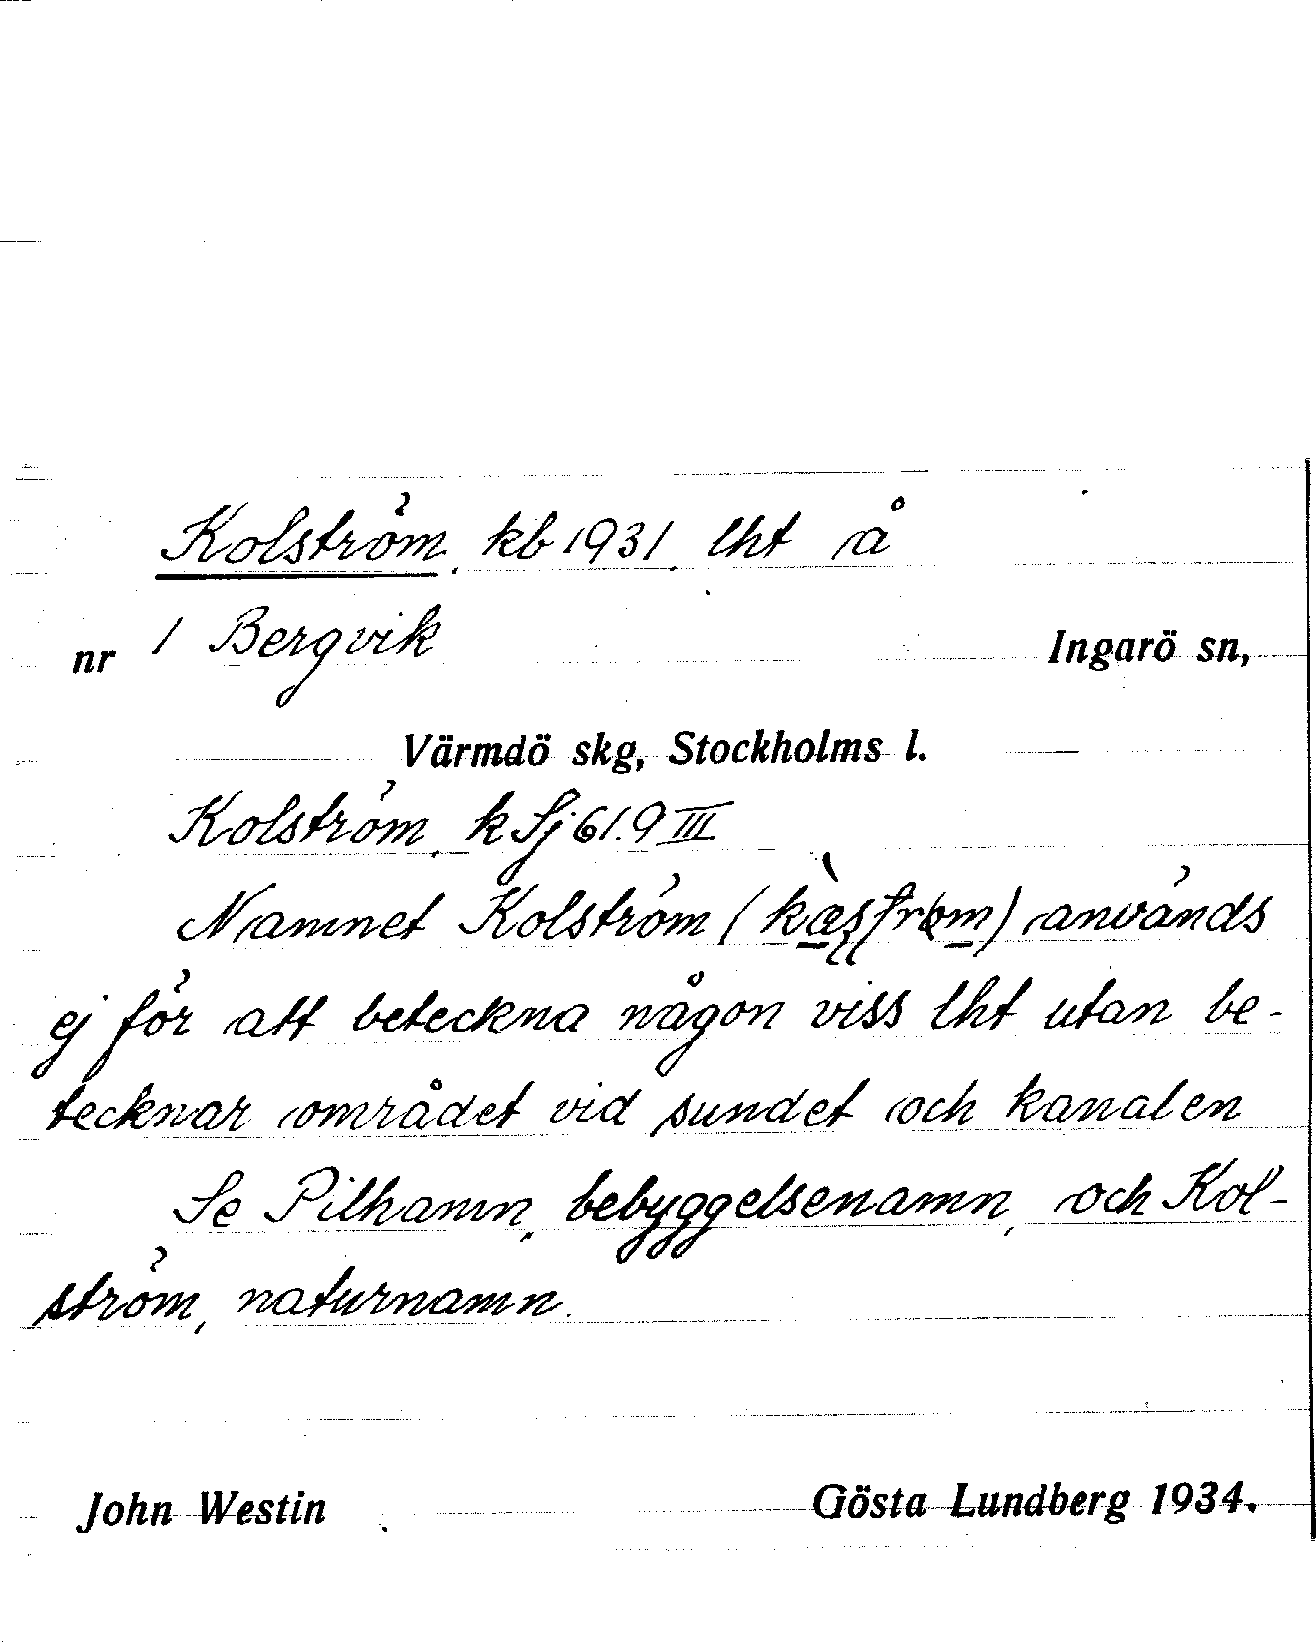 Kolström, kb 1931, lht å
nr 1 Bergvik Ingarö sn,
Värmdö skg, Stockholms l.
Kolström, k Sj 61.9 III
Namnet Kolström ( ) används
ej för att beteckna någon viss lht utan be-
tecknar området vid sundet och kanalen
Se Pilhamn, bebyggelsenamn, och Kol-
ström, naturnamn.
John Westin Gösta Lundberg 1934.